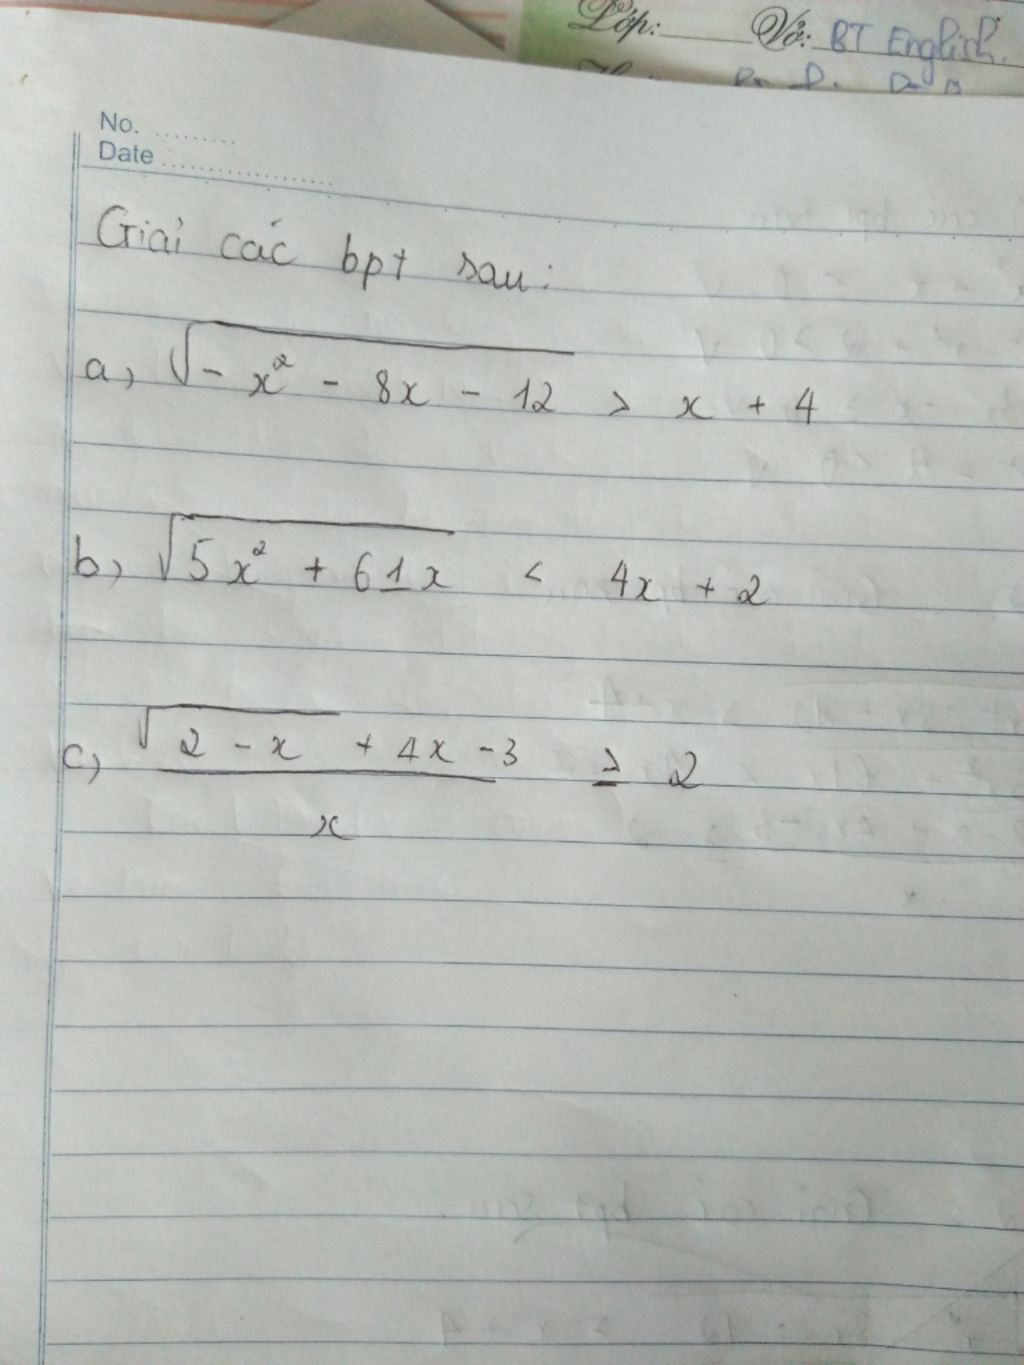 Lớp: Vở: BT English.
No. ..........
Date ......................
Giải các bpt sau:
a, √-x² - 8x - 12 > x + 4
b, √5x² + 61x < 4x + 2
c, √2 - x + 4x - 3 ≥ 2
x